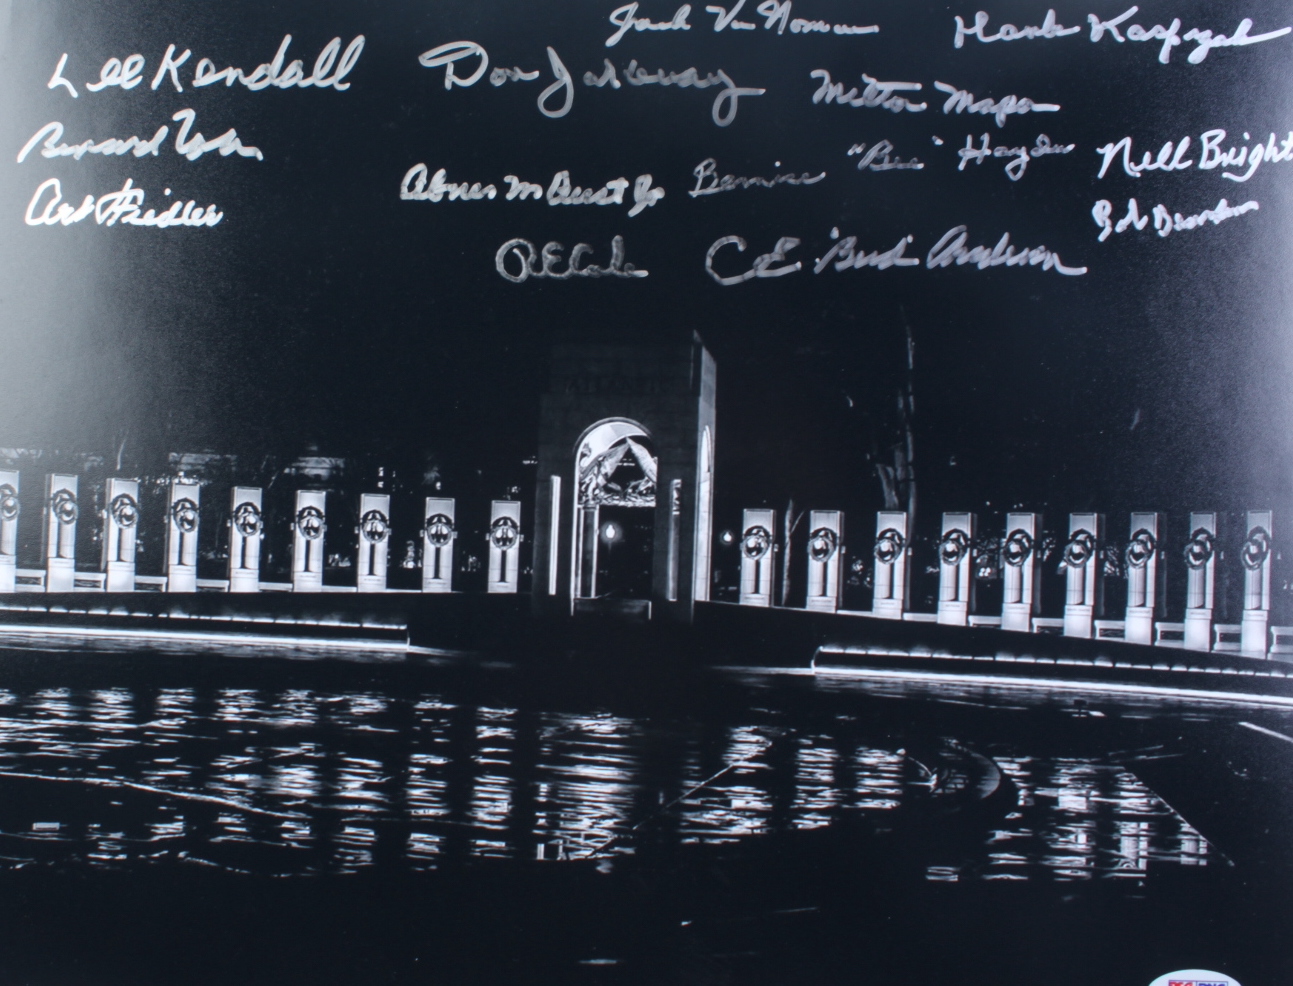 Jack Van Norman
Hank Kaspzak
Lee Kendall
Don Jakeway
Milton Mapou
Bernard
Abner M Aust Jr
Bernice "Bee" Haydu
Nell Bright
Art Fiedler
Bob
R E Cole
C E "Bud" Anderson
ATLANTIC